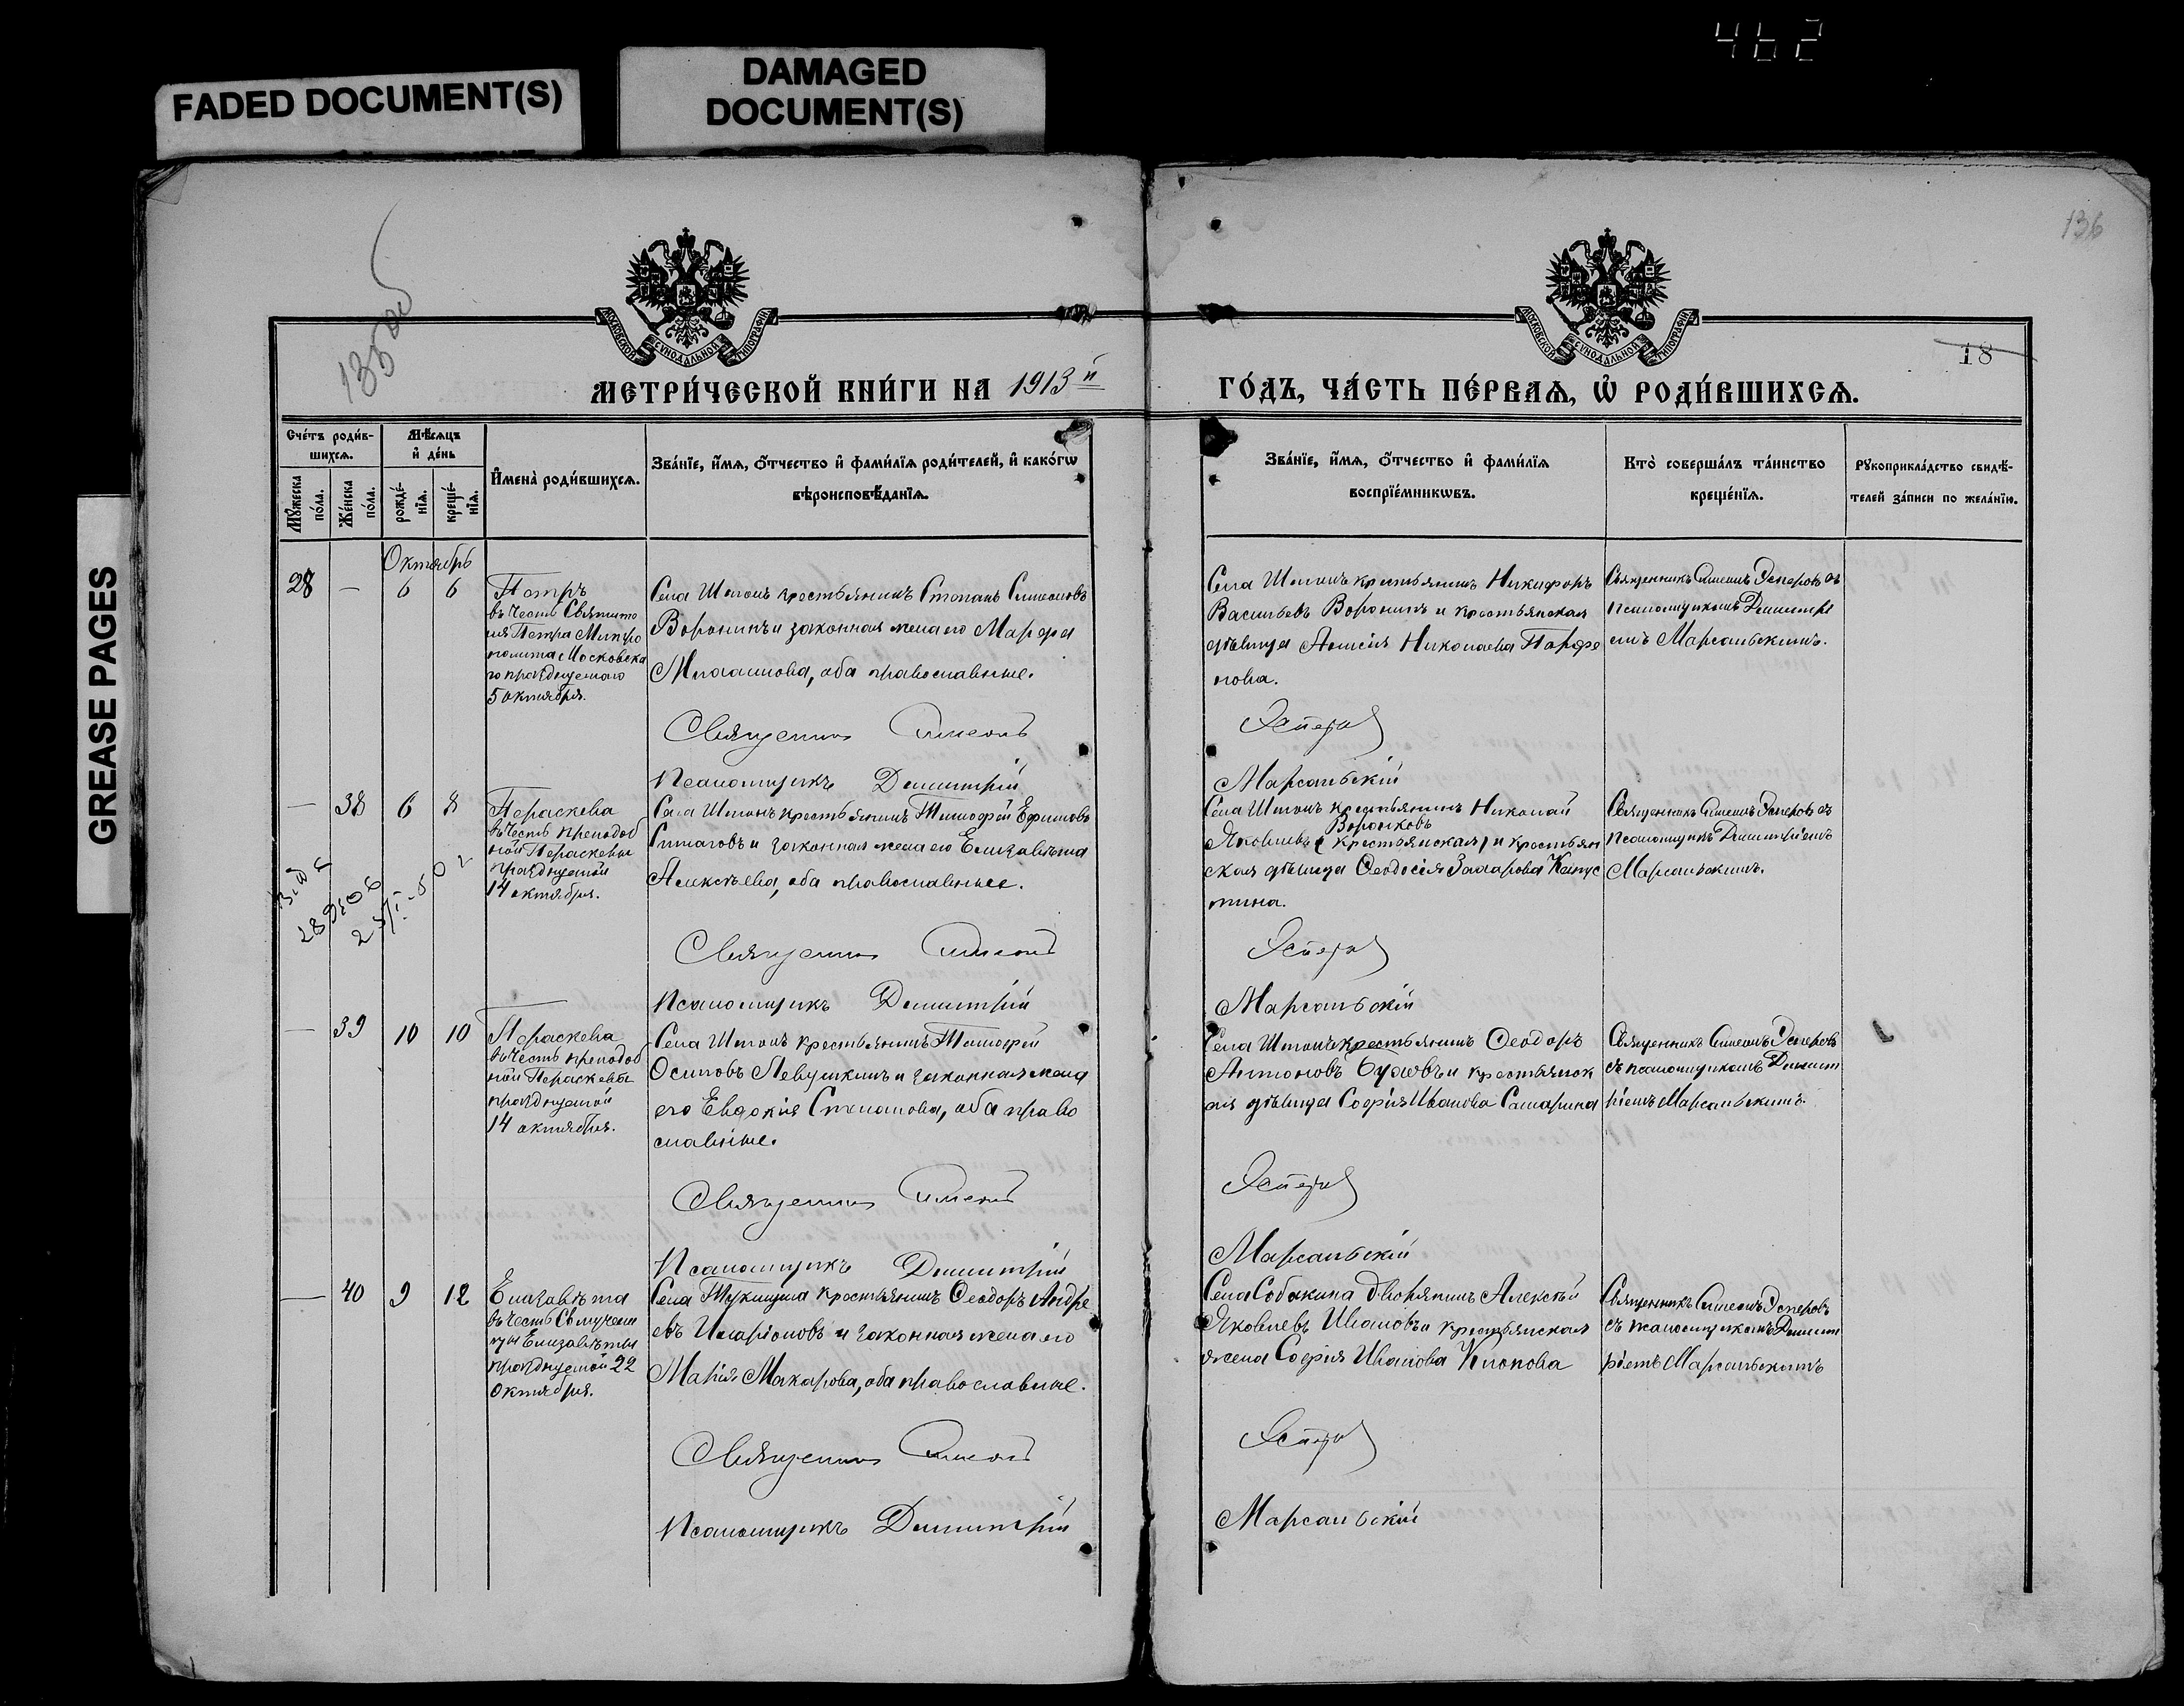 462
FADED DOCUMENT(S)
DAMAGED
DOCUMENT(S)
GREASE PAGES
136
135 об
18
МОСКОВСКОЙ СѴНОДАЛЬНОЙ ТИПОГРАФІИ
МОСКОВСКОЙ СѴНОДАЛЬНОЙ ТИПОГРАФІИ
МЕТРИ́ЧЕСКОЙ КНИ́ГИ НА 1913й
ГО́ДЪ, ЧА́СТЬ ПЕ́РВАѦ, Ѽ РОДИ́ВШИХСѦ.
Сче́тъ роди́в-
шихсѧ.
Мѣ́сѧцъ
и҆ де́нь
Мꙋ́жеска
по́ла.
Же́нска
по́ла.
рожде́-
нїѧ.
креще́-
нїѧ.
И҆мена̀ роди́вшихсѧ.
Зва́нїе, и҆́мѧ, ѻ҆́тчество и҆ фами́лїѧ роди́телей, и҆ како́гѡ
вѣроисповѣ́данїѧ.
Зва́нїе, и҆́мѧ, ѻ҆́тчество и҆ фами́лїѧ
воспрїе́мникѡвъ.
Кто̀ соверша́лъ та́инство
креще́нїѧ.
Рꙋкоприкла́дство свидѣ́-
телей за́писи по жела́нїю.
Октябрь
28 — 6 6
Петръ
въ честь Святите
ля Петра Митро
полита Московска
го празднуемаго
5 октября.
Села крестьянинъ Стефанъ Симеоновъ
Воронинъ и законная жена его Марфа
оба православные.
Священникъ Симеонъ
Псаломщикъ Димитрій
Села крестьянинъ Никифоръ
Васильевъ Воронинъ и крестьянская
дѣвица Николаева Парфе
нова.
Эсперовъ
Марсальскій
Священникъ Симеонъ Эсперовъ съ
псаломщикомъ Димитрі
емъ Марсальскимъ.
— 38 6 8
Параскева
въ честь преподоб
ной Параскевы
празднуемой
14 октября.
Села крестьянинъ Тимофей Ефимовъ
и законная жена его Елизавѣта
Алексѣева, оба православные.
Священникъ Симеонъ
Псаломщикъ Димитрій
Села крестьянинъ Николай
Воронковъ
Яковлевъ (крестьянская) и крестьян
ская дѣвица Ѳеодосія Захарова
Эсперовъ
Марсальскій
Священникъ Симеонъ Эсперовъ съ
псаломщикомъ Димитріемъ
Марсальскимъ.
— 39 10 10
Параскева
въ честь преподоб
ной Параскевы
празднуемой
14 октября.
Села крестьянинъ Тимофей
Осиповъ Левушкинъ и законная жена
его Евдокія Степанова, оба право
славные.
Священникъ Симеонъ
Псаломщикъ Димитрій
Села крестьянинъ Ѳеодоръ
Антоновъ и крестьянск
ая дѣвица Софія Иванова Самарина
Эсперовъ
Марсальскій
Священникъ Симеонъ Эсперовъ
съ псаломщикомъ Димит
ріемъ Марсальскимъ
— 40 9 12
Елизавѣта
въ честь Св. мучени
цы Елизавѣты
празднуемой 22
октября.
Села крестьянинъ Ѳеодоръ Андре
евъ Иларіоновъ и законная жена его
Марія Макарова, оба православные.
Священникъ Симеонъ
Псаломщикъ Димитрій
Села Собакина дворянинъ Алексѣй
Яковлевъ Ивановъ и крестьянская
жена Софія Иванова
Эсперовъ
Марсальскій
Священникъ Симеонъ Эсперовъ
съ псаломщикомъ Димит
ріемъ Марсальскимъ